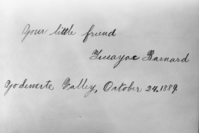 Your little friend
Barnard
Valley, October 24, 1889.